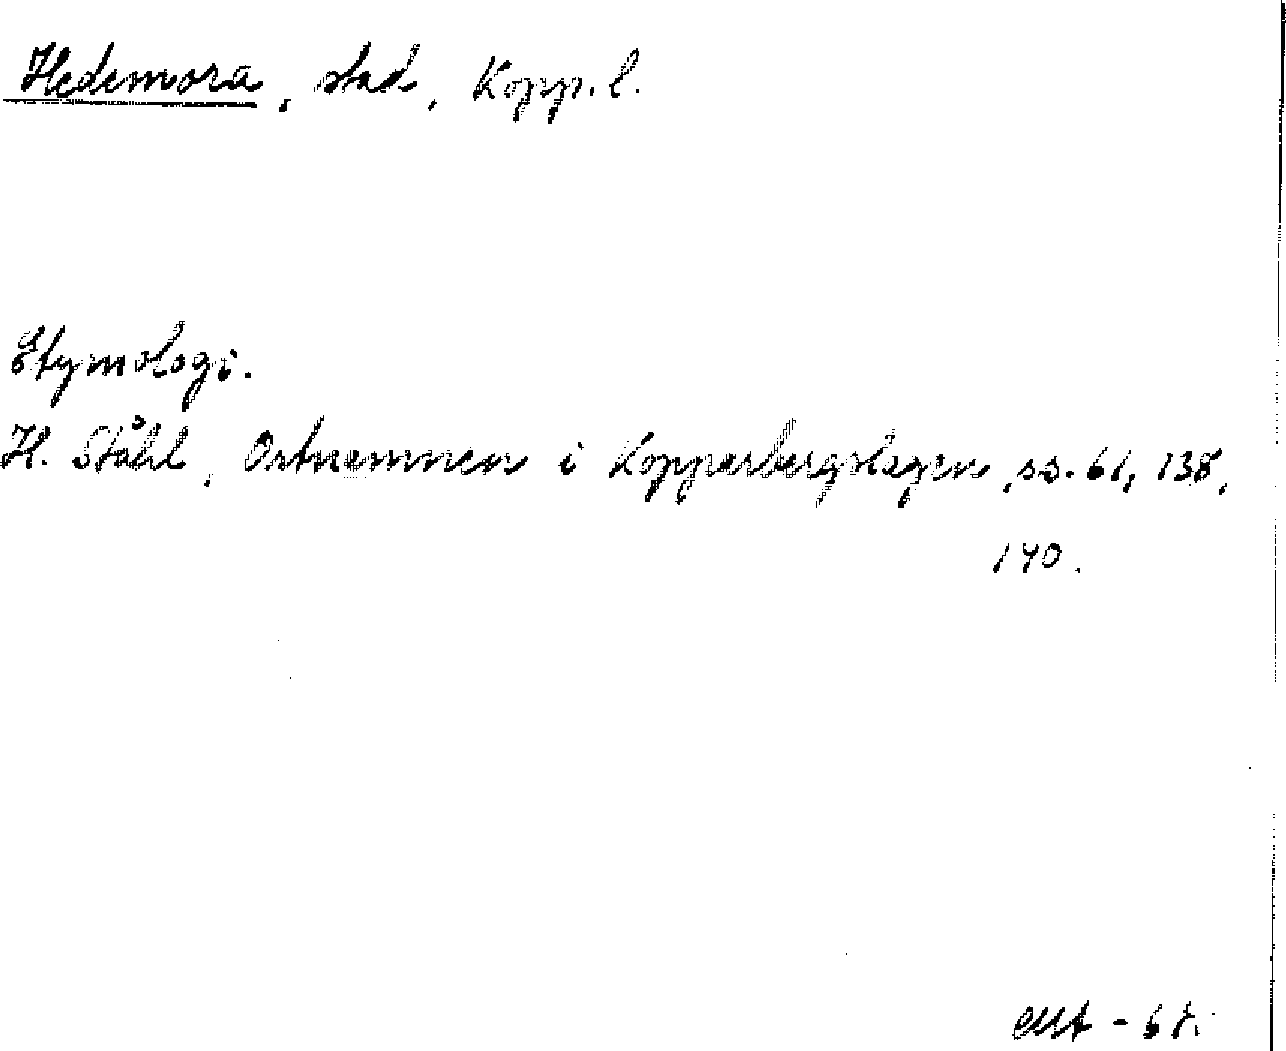 Hedemora, stad, Kopp. l.
Etymologi.
H. Ståhl, Ortnamnen i Kopparbergslagen, ss. 61, 138,
140.